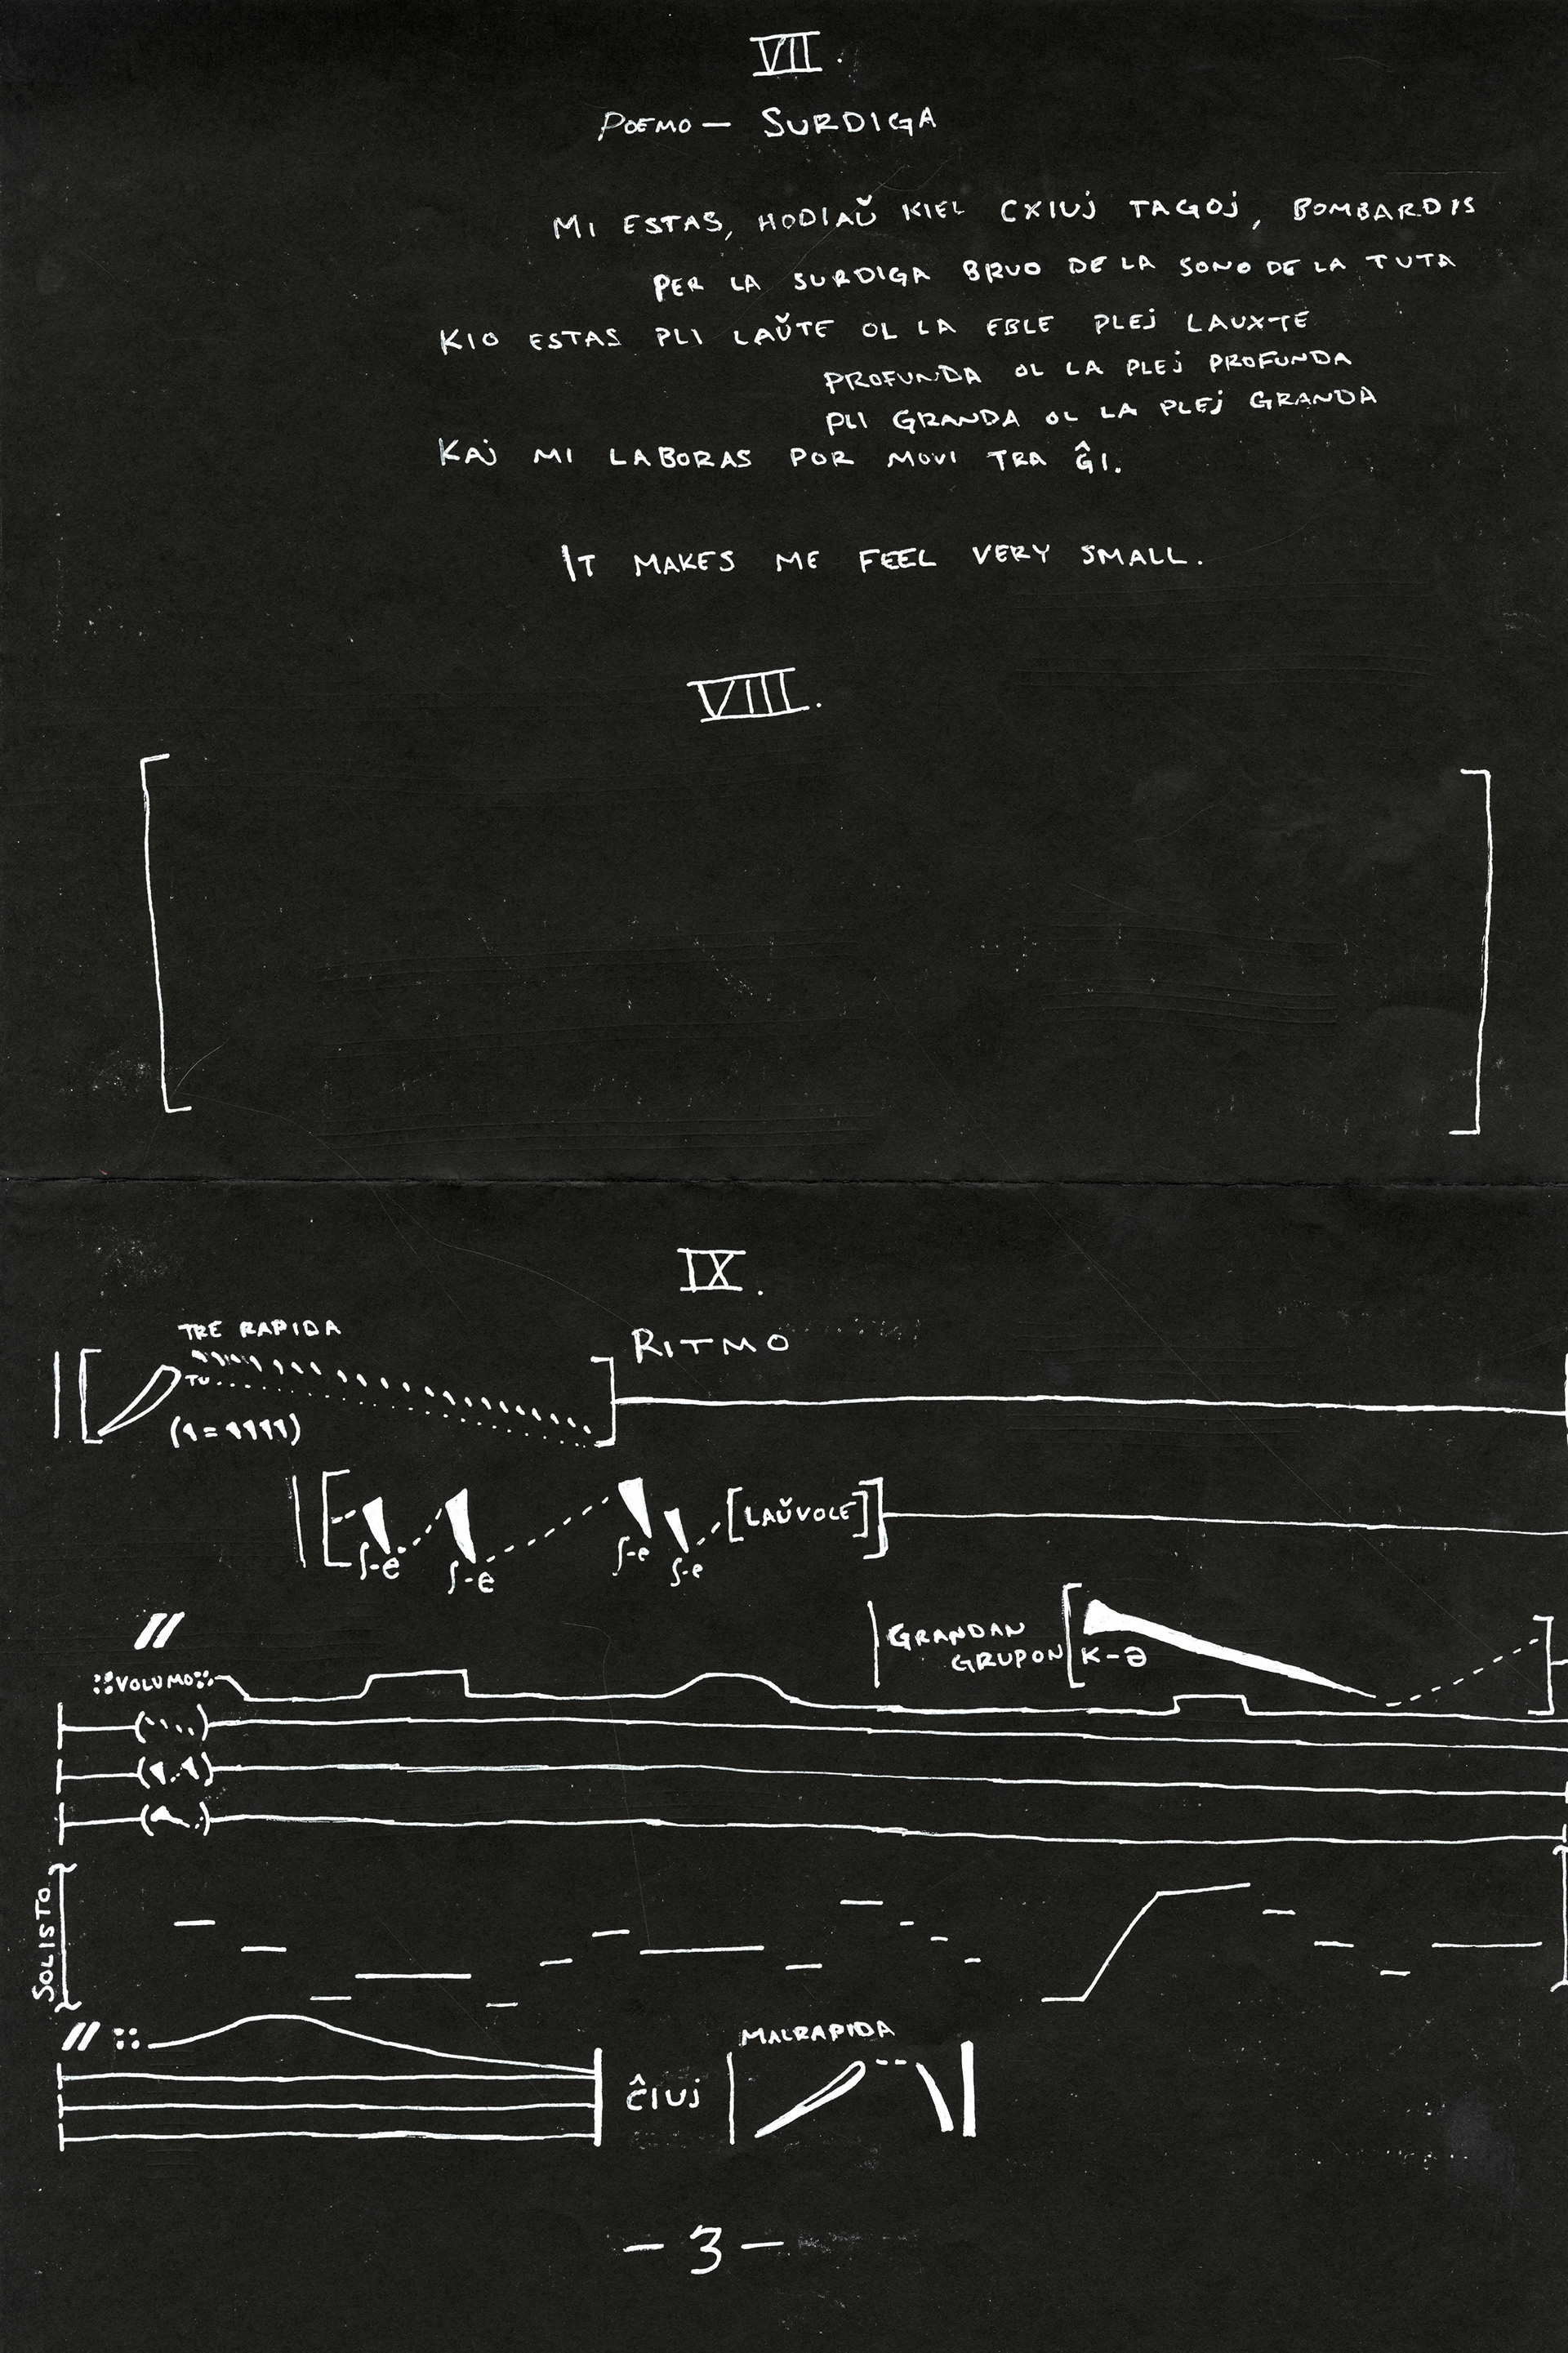 VII.
POEMO — SURDIGA
MI ESTAS, HODIAŬ KIEL CXIUJ TAGOJ, BOMBARDIS
PER LA SURDIGA BRUO DE LA SONO DE LA TUTA
KIO ESTAS PLI LAŬTE OL LA EBLE PLEJ LAUXTE
PROFUNDA OL LA PLEJ PROFUNDA
PLI GRANDA OL LA PLEJ GRANDA
KAJ MI LABORAS POR MOVI TRA ĜI.
IT MAKES ME FEEL VERY SMALL.
VIII.
IX.
RITMO
TRE RAPIDA
TU
[LAŬVOLE]
ʃ-e
ʃ-e
ʃ-e
ʃ-e
GRANDAN
GRUPON
K-ə
VOLUMO
SOLISTO
ĈIUJ
MALRAPIDA
-3-